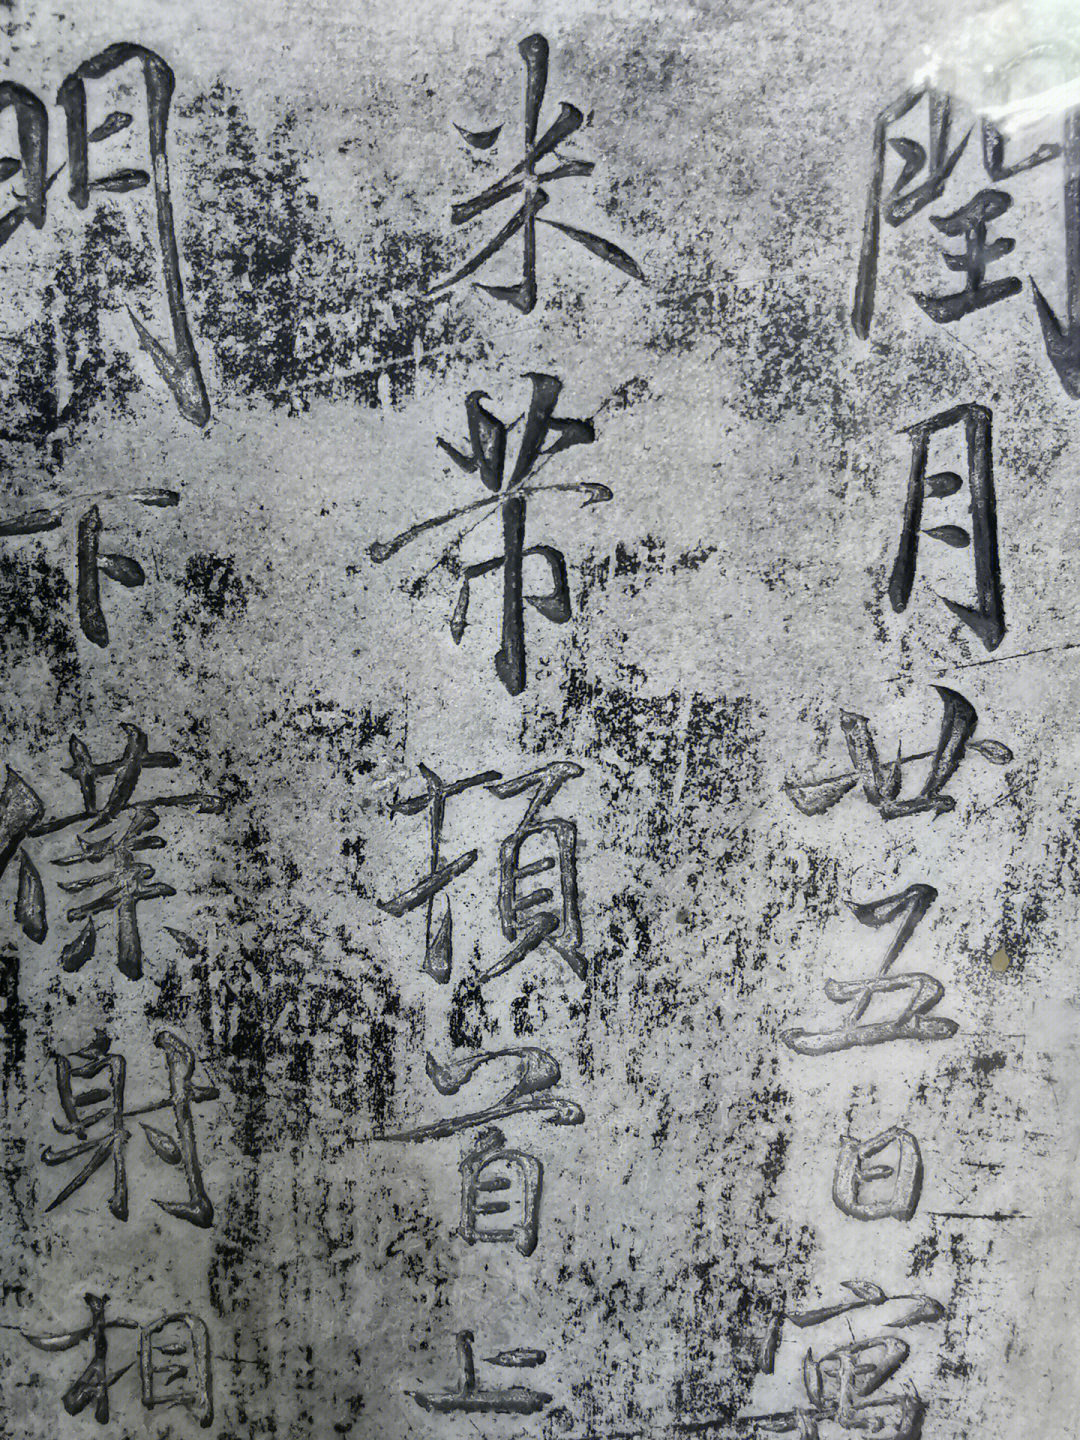 閏月廿五日寓
米芾頓首上
門下僕射相